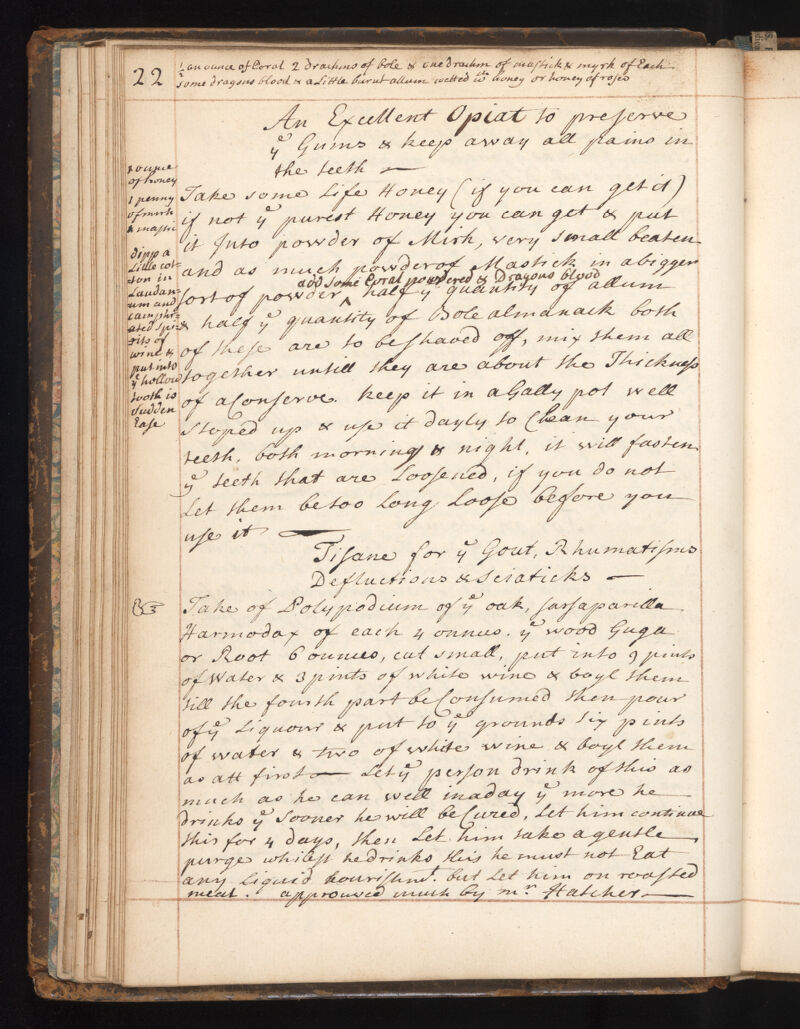 22
½ an ounce of Coral 2 drachms of bole & one drachm of mastick & myrh of Each
some dragons blood & a little burnt allum wetted wth honey or honey of roses
An Excellent Opiat to preserve
ye Gums & keep away all pains in
the teeth
ounce
of honey
1 penny
of mirh
& masti
dipp a
Little cot=
ton in
Laudan=
um and
camphir=
ated spi=
rits of
wine &
put into
ye hollow
tooth is
Sudden
Ease
Take some Life Honey (if you can get it)
if not ye purest Honey you can get & put
it Into powder of Mirh, very small beaten
and as much powder of Mastick in a bigger
add some Coral powdered & Dragons blood
sort of powder ^ half ye quantity of allum
& half ye quantity of Bole almanack both
of these are to be shaved off, mix them all
together untill they are about the Thickness
of a Conserve. keep it in a Gally pot well
Stoped up & use it dayly to Clean your
teeth. both morning & night, it will fasten
ye teeth that are Loosened, if you do not
Let them be too Long Loose before you
use it
Tisane for ye Gout, Rhumatisms
Defluctions & Sciaticks
Take of Polypodium of ye oak, sarsaparilla
Harmodax of each 4 ounces. ye wood Guga
or Root 6 ounces, cut small, put into 9 pints
of Water & 3 pints of white wine & boyl them
till the fourth part be Consumed then pour
of ye Liquour & put to ye grounds Six pints
of water & two of white wine & boyl them
as att first Let ye person drink of this as
much as he can well in a day ye more he
drinks ye Sooner he will be Cured, Let him continue
this for 4 days, then Let him take a gentle
purge whilest he drinks this he must not Eat
any Liquid nourishmt. but Let him on roasted
meat. approuved much by mr Hatcher